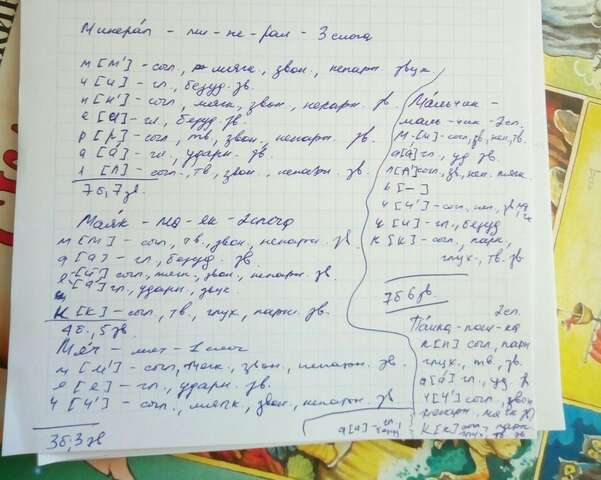 Минера́л - ми - не - рал - 3 слога
м [м'] - согл., мягк., звон., непарн. звук
и [и] - гл., безуд. зв.
н [н'] - согл., мягк., звон., непарн. зв.
е [и] - гл., безуд. зв.
р [р] - согл., тв., звон., непарн. зв.
а [а́] - гл., ударн. зв.
л [л] - согл., тв., звон., непарн. зв.
7б, 7зв.
Мая́к - ма - як - 2 слога
м [м] - согл., тв., звон., непарн. зв.
а [а] - гл., безуд. зв.
[й'] согл., мягк., звон., непарн. зв.
[а́] гл., ударн., звук
к [к] - согл., тв., глух., парн. зв.
4б., 5зв.
Мяч - мяч - 1 слог
м [м'] - согл., мягк., звон., непарн. зв.
гл., ударн. зв.
ч [ч'] - согл., мягк., звон., непарн. зв.
3б, 3зв
Ма́льчик -
маль - чик - 2сл.
м [м] - согл., зв., неп., тв.
а [а́] гл., уд зв.
л [л'] согл, зв, неп. мягк
ь [-]
ч [ч'] - согл., неп.,
и [и] - гл., безуд
к [к] - согл., парн.,
глух., тв. зв
7б 6зв.
2сл.
па́чка - пач - ка
п [п] согл., парн
глух., тв., зв.
а [а́] гл., уд зв
ч [ч'] согл., звон
непарн., мягк
к [к] согл., парн.
глух., тв зв
а [а] - гл., безуд